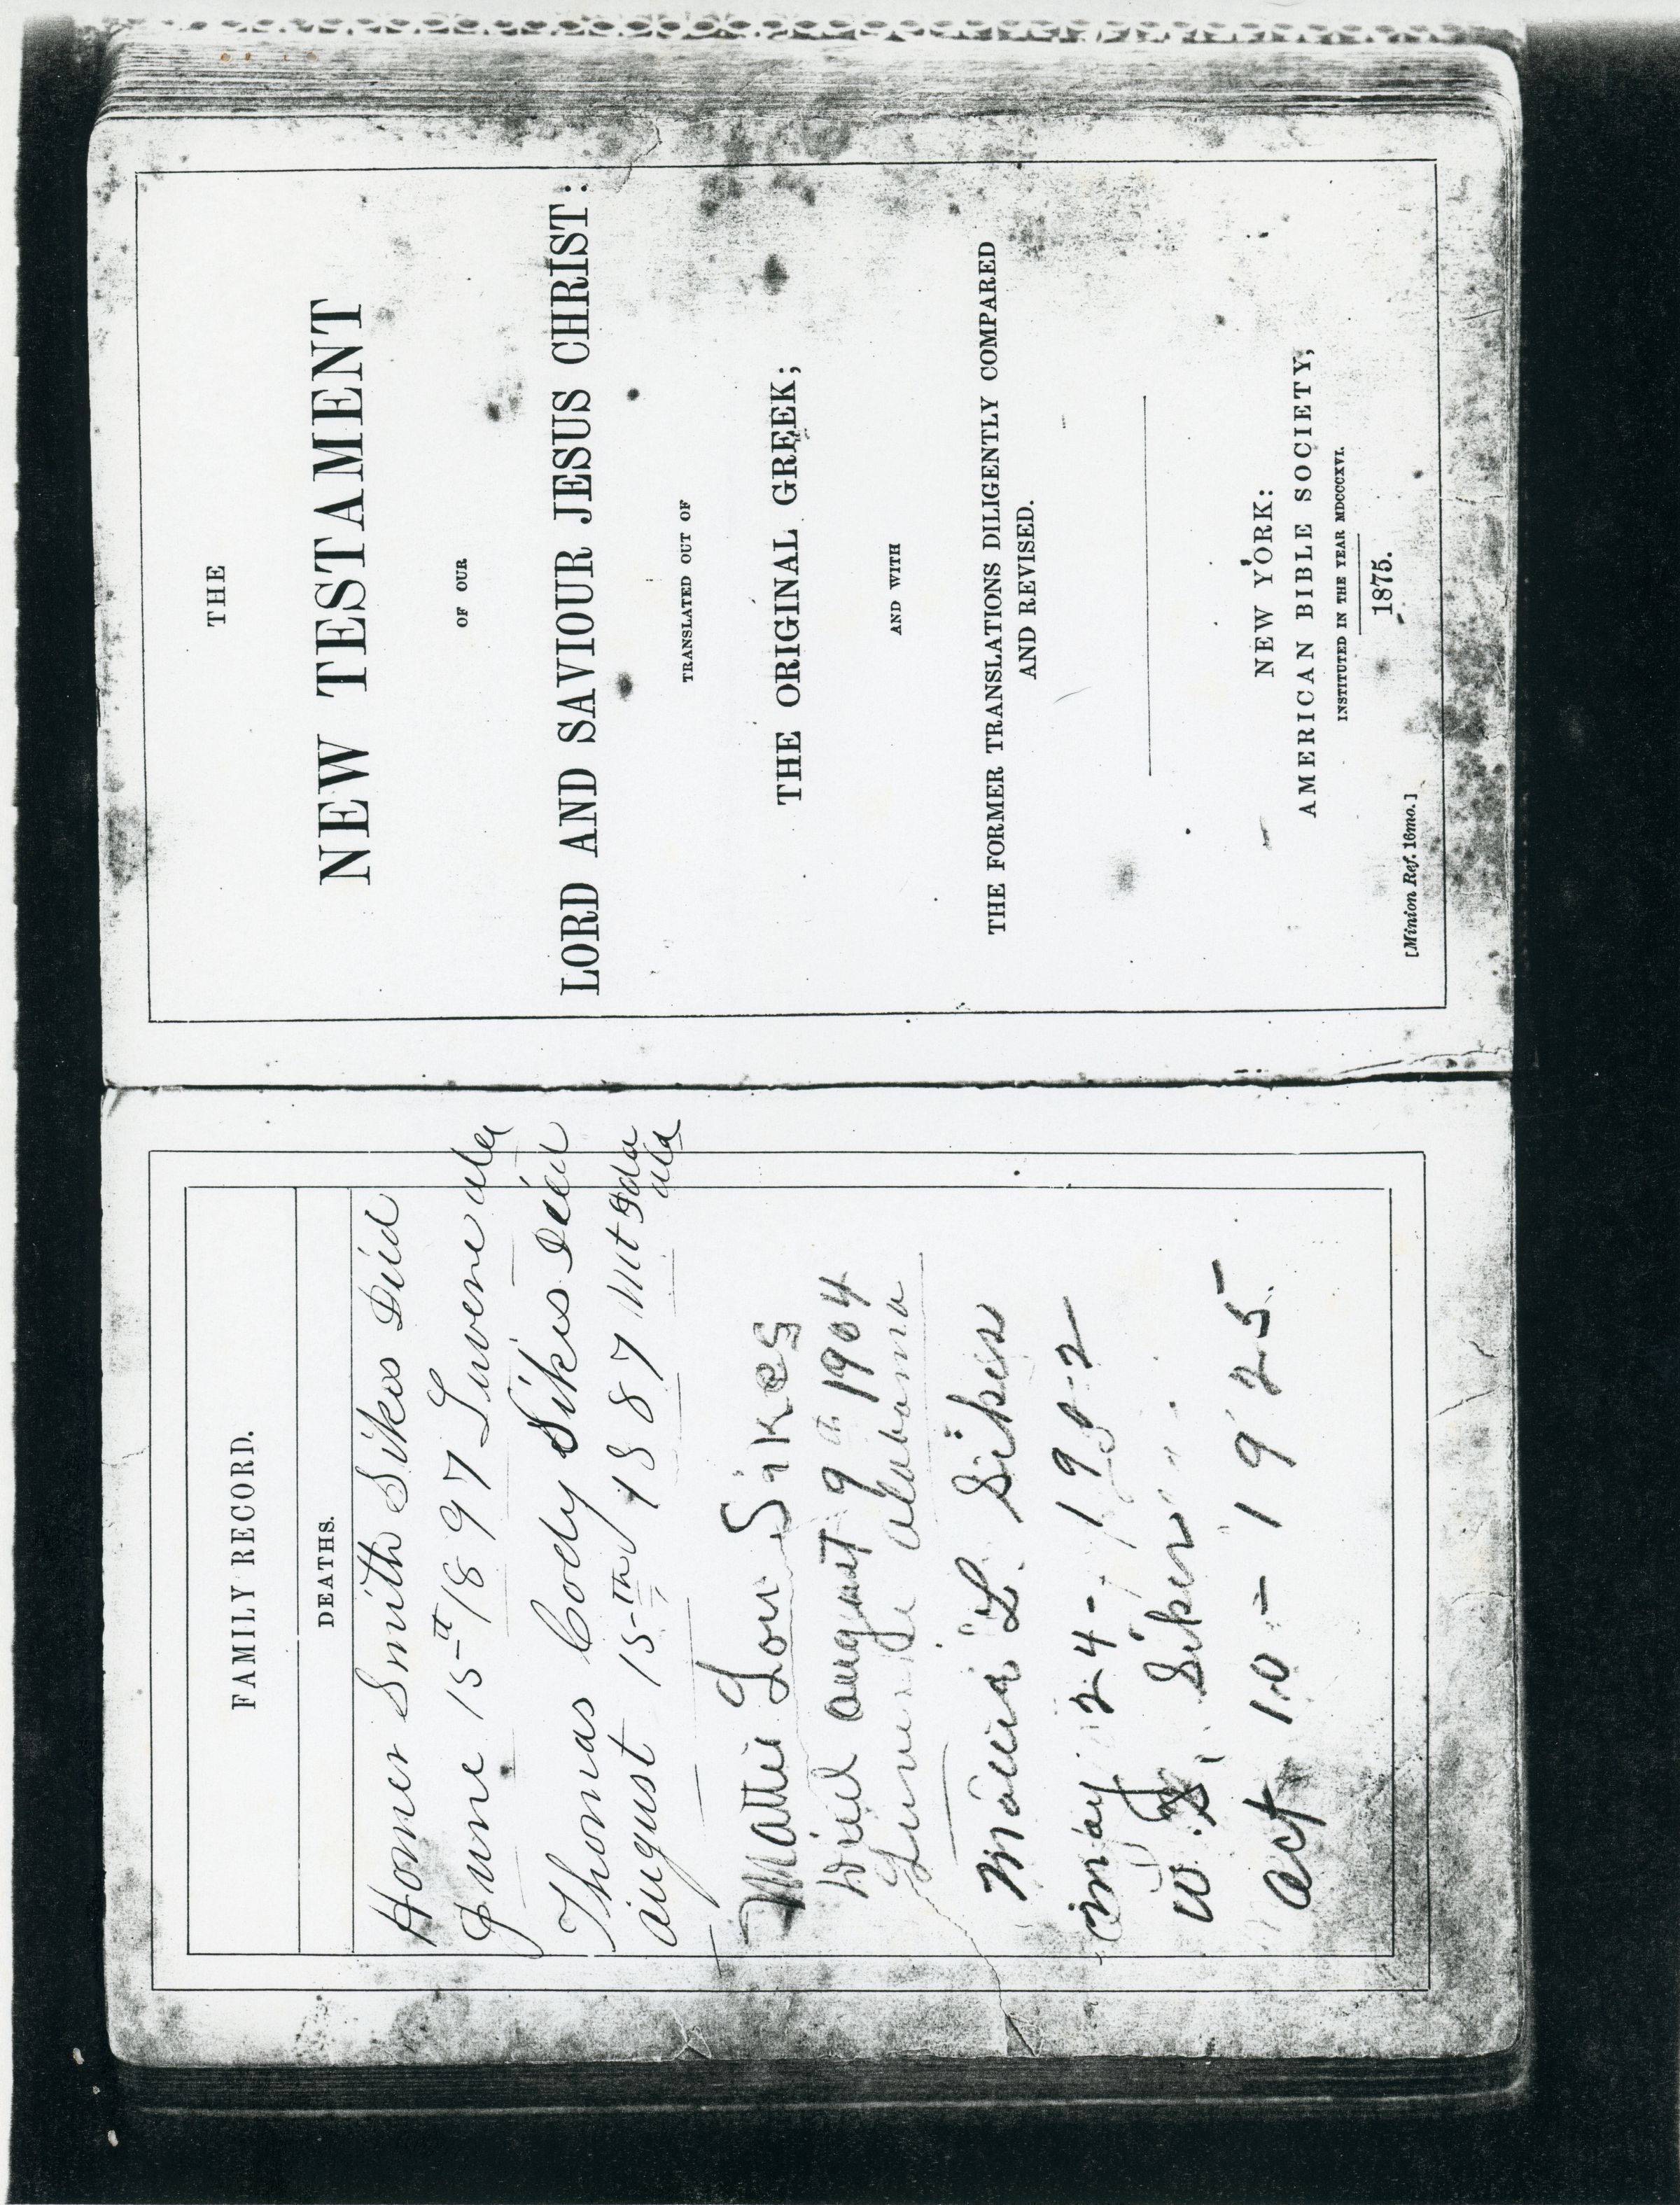 FAMILY RECORD.
DEATHS.
Homer Smith Sikes Died
June 15th 1897 Luverne ala
Thomas Cody Sikes Died
august 15th 1887 Mt Ida
ala
Mattie Lou Sikes
Died august 9th 1904
Luverne alabama
L. Sikes
may 24-1902
W. Sikes
oct 10-1925.
THE
NEW TESTAMENT
OF OUR
LORD AND SAVIOUR JESUS CHRIST:
TRANSLATED OUT OF
THE ORIGINAL GREEK;
AND WITH
THE FORMER TRANSLATIONS DILIGENTLY COMPARED
AND REVISED.
NEW YORK:
AMERICAN BIBLE SOCIETY,
INSTITUTED IN THE YEAR MDCCCXVI.
1875.
[Minion Ref. 16mo.]